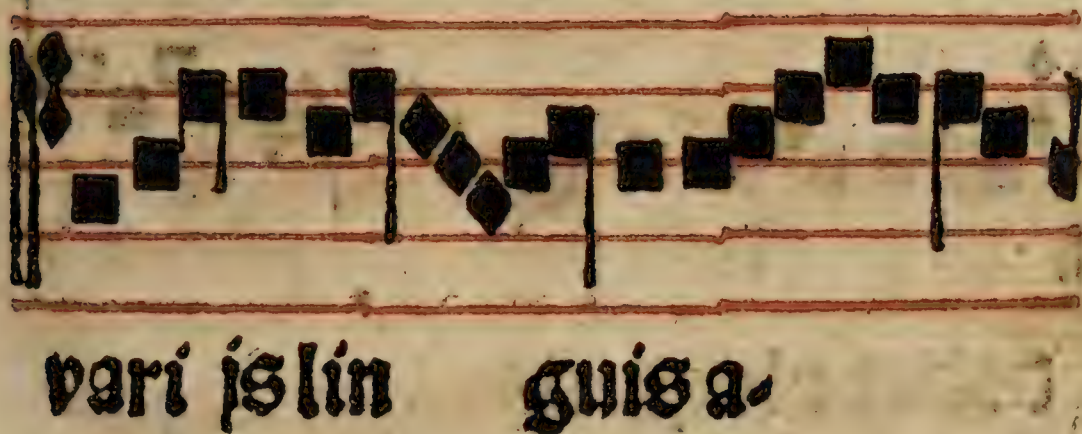 vari js lin guis a-